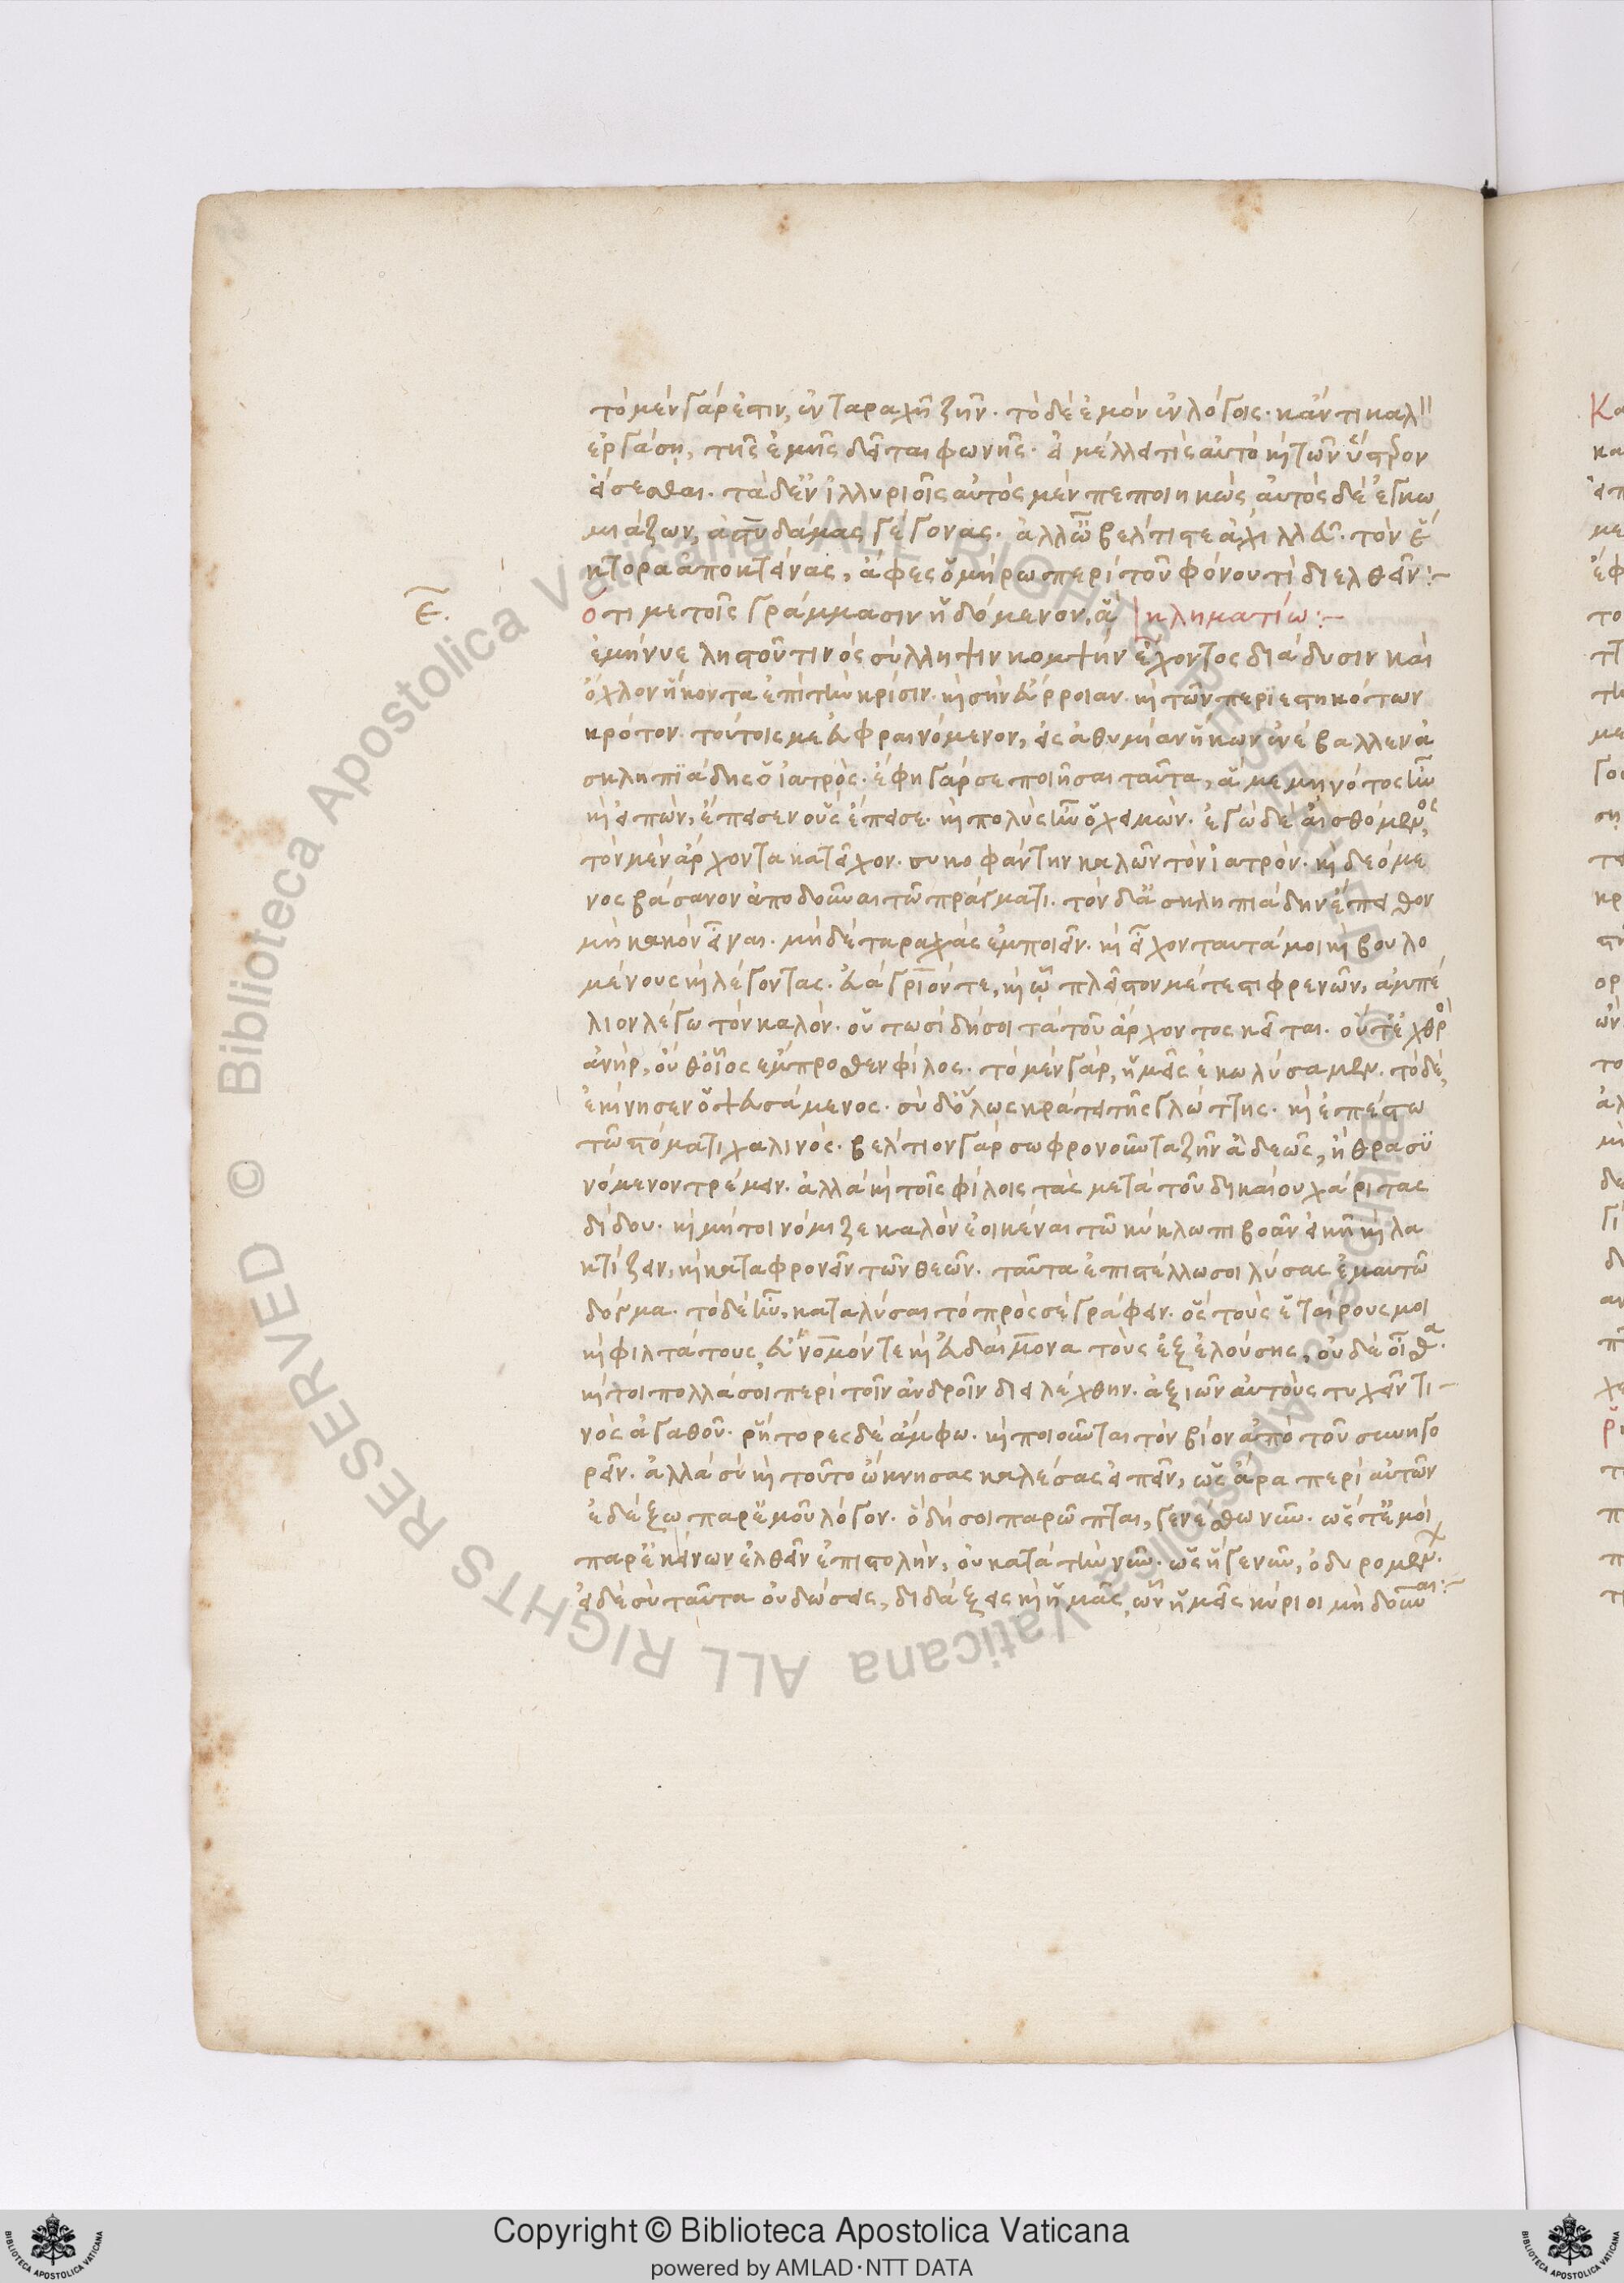 τὸ μὲν γάρ ἐστιν, ἐν ταραχῇ ζῆν. τὸ δὲ ἐμὸν ἐν λόγοις. κἄν τι καλ
ἐργάσῃ, τῆς ἐμῆς δεῖται φωνῆς. εἰ μέλλει τις αὐτὸ καὶ τῶν ὕστερον
εἴσεσθαι. τὰ δ' ἐν ἰλλυριοῖς αὐτὸς μὲν πεποιηκὼς αὐτὸς δὲ ἐγκω
μιάζων, ἀστυδάμας γέγονας. ἀλλ' ὦ βέλτιστε ἀχιλλεῦ. τὸν ἕ
κτορα ἀποκτείνας, ἄφες ὁμήρω περὶ τοῦ φόνου τὶ διελθεῖν:-
ε. Ὅτι με τοῖς γράμμασιν ἡδόμενον, ἃ κληματίω:-
ἐμήνυε ληστοῦ τινὸς σύλληψιν κομψὴν ἔχοντος διάδυσιν καὶ
ὄχλον ἥκοντα ἐπὶ τὴν κρίσιν. καὶ σὴν εὔροιαν. καὶ τῶν περιεστηκότων
κρότον. τούτοις με εὐφραινόμενον, εἰς ἀθυμίαν ἥκων ἐνέβαλλεν ἀ
σκληπιάδης ὁ ἰατρός. ἔφη γάρ σε ποιῆσαι ταῦτα, ἃ μεμηνότος ἦν
καὶ εἰπὼν, ἔπεισεν οὓς ἔπεισε. καὶ πολὺς ἦν ὁ χειμών. ἐγὼ δὲ αἰσθόμενος,
τὸν μὲν ἄρχοντα κατεῖχον. συκοφάντην καλῶν τὸν ἰατρόν. καὶ δεόμε
νος βάσανον ἀποδοῦναι τῶ πράγματι. τὸν δ' ἀσκληπιάδην ἔπειθον
μὴ κακὸν εἶναι. μηδὲ ταραχὰς ἐμποιεῖν. καὶ εἶχον ταυτά μοι καὶ βουλο
μένους καὶ λέγοντας. εὐάγριόν τε, καὶ ᾧ πλεῖστον μέτεστι φρενῶν, ἀμπέ
λιον λέγω τὸν καλόν. οὕτωσι δή σοι τὰ τοῦ ἄρχοντος κεῖται. οὔτ' ἐχθρὸς
ἀνήρ, οὔθ' οἷος ἔμπροσθεν φίλος. τὸ μὲν γάρ, ἡμεῖς ἐκωλύσαμεν. τὸ δέ,
ἐκίνησεν ὁ ψευσάμενος. σὺ δ' ὅλως κράτει τῆς γλώττης. καὶ ἐπέστω
τῶ στόματι χαλινός. βέλτιον γὰρ σωφρονοῦντα ζῆν ἀδεῶς, ἢ θρασυ
νόμενον τρέμειν. ἀλλὰ καὶ τοῖς φίλοις τὰς μετὰ τοῦ δικαίου χάριτας
δίδου. καὶ μή τοι νόμιζε καλὸν ἐοικέναι τῶ κύκλωπι βοᾶν εἰκῆ καὶ λα
κτίζειν, καὶ καταφρονεῖν τῶν θεῶν. ταῦτα ἐπιστέλλω σοι λύσας ἐμαυτῶ
δόγμα. τὸ δὲ ἦν, καταλύσαι τὸ πρὸς σὲ γράφειν. ὃς τοὺς ἑταίρους μοι
καὶ φιλτάτους, εὐνόμόν τε καὶ εὐδαίμονα τοὺς ἐξ ἐλούσης, οὐδὲ οἶσθα.
καί τοι πολλά σοι περὶ τοῖν ἀνδροῖν διελέχθην. ἀξιῶν αὐτοὺς τυχεῖν τι-
νὸς ἀγαθοῦ. ῥήτορες δὲ ἄμφω. καὶ ποιοῦνται τὸν βίον ἀπὸ τοῦ συνηγο
ρεῖν. ἀλλὰ σὺ καὶ τοῦτο ὤκνησας καλέσας εἰπεῖν, ὡς ἄρα περὶ αὐτῶν
ἐδέξω παρ' ἐμοῦ λόγον. ὃ δή σοι παρῶπται, γενέσθω νῦν. ὥστ' ἐμοὶ
παρ' ἐκείνων ἐλθεῖν ἐπιστολήν, οὐ κατὰ τὴν νῦν. ὡς ἥ γε νῦν, ὀδυρομένων.
εἰ δὲ σὺ ταῦτα οὐ δώσεις, διδάξεις καὶ ἡμᾶς, ὧν ἡμεῖς κύριοι μὴ δοῦναι:-
Copyright © Biblioteca Apostolica Vaticana
powered by AMLAD·NTT DATA